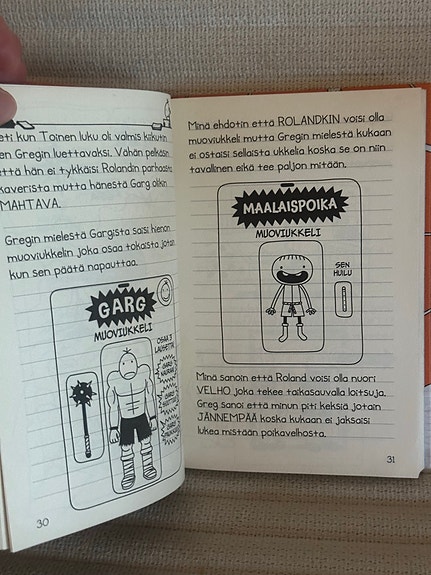 eti kun Toinen luku oli valmis kiikutin
en Gregin luettavaksi. Vähän pelkäsin
että hän ei tykkäisi Rolandin parhaasta
kaverista mutta hänestä Garg olikin
MAHTAVA.
Gregin mielestä Gargista saisi hienon
muoviukkelin joka osaa tokaista jotain
kun sen päätä napauttaa.
GARG
MUOVIUKKELI
OSAA 3
LAUSETTA
GARG
GARG
GARG
30
Minä ehdotin että ROLANDKIN voisi olla
muoviukkeli mutta Gregin mielestä kukaan
ei ostaisi sellaista ukkelia koska se on niin
tavallinen eikä tee paljon mitään.
MAALAISPOIKA
MUOVIUKKELI
SEN
HUILU
Minä sanoin että Roland voisi olla nuori
VELHO joka tekee taikasauvalla loitsuja.
Greg sanoi että minun piti keksiä jotain
JÄNNEMPÄÄ koska kukaan ei jaksaisi
lukea mistään poikavelhosta.
31